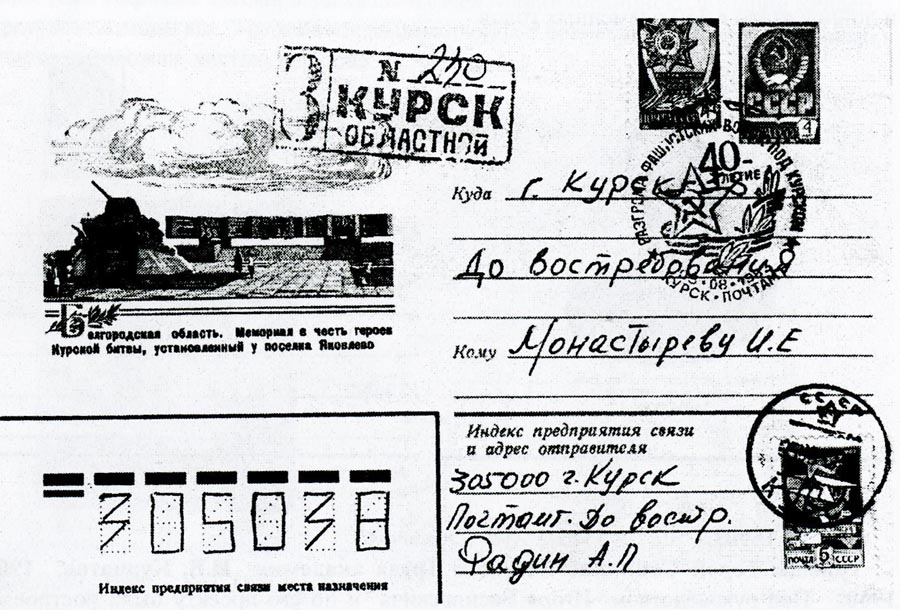 З N 240
КУРСК
ОБЛАСТНОЙ
4
40-
ЛЕТИЕ
РАЗГРОМА ФАШИСТСКИХ ПОД КУРСКОМ
08
КУРСК • ПОЧТАМТ
Куда г. Курск
До востребования
Кому Монастыреву И.Е
Белгородская область. Мемориал в честь героев
Курской битвы, установленный у поселка Яковлево
Индекс предприятия связи
и адрес отправителя
305000 г. Курск
Почтамт. До востр.
Фадин А.П
305038
Индекс предприятия связи места назначения
СССР
6